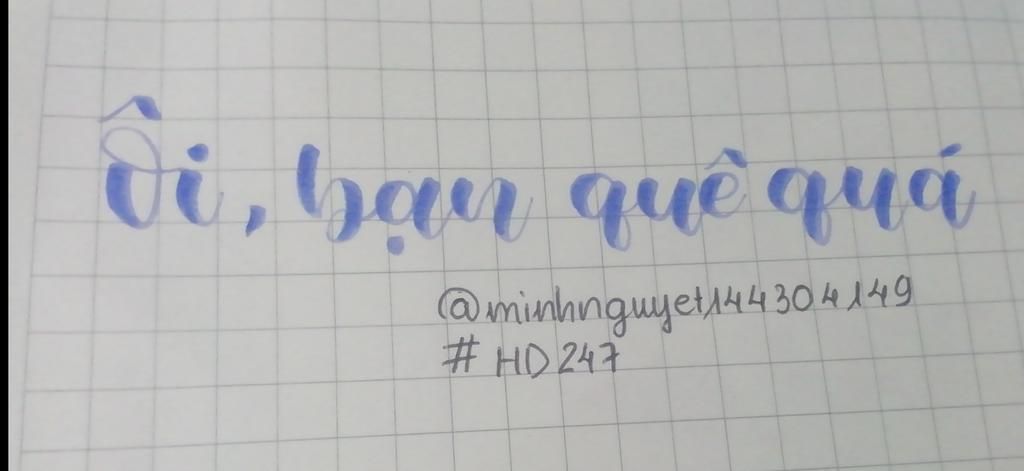 Ôi, bạn quê quá
@minhnguyet144304149
#HD247